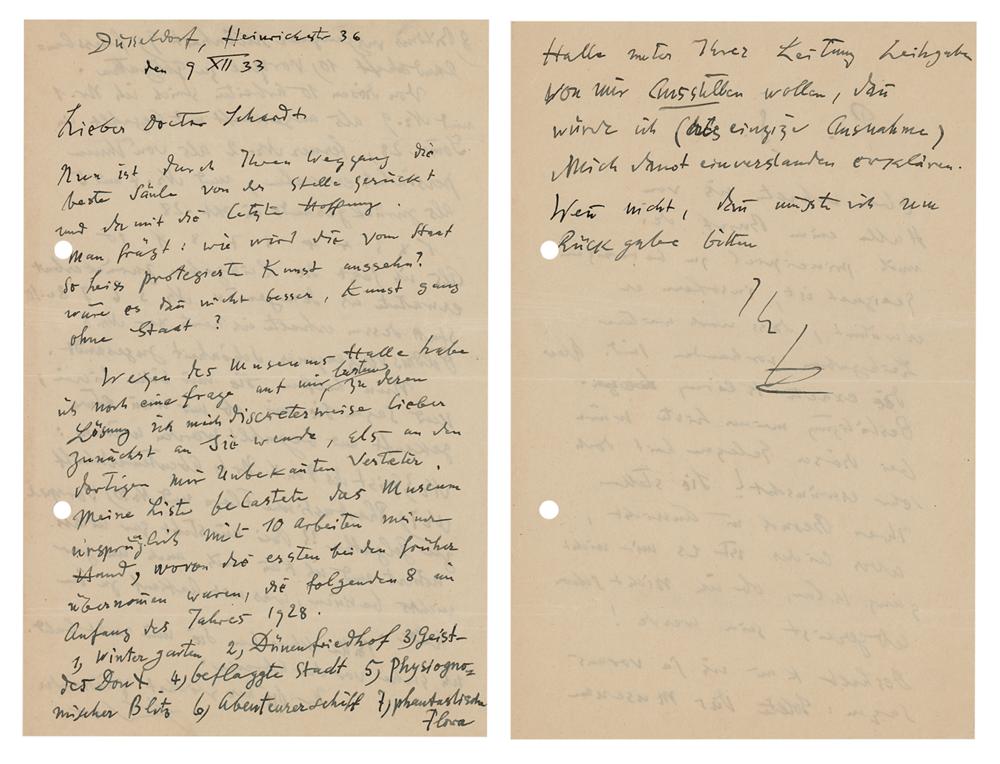 Düsseldorf, Heinrichstr 36
den 9 XII 33
Lieber Doctor Schardt
Nun ist durch Ihren Weggang die
beste Säule von der Stelle gerückt
und damit die letzte Hoffnung.
Man frägt: wie wird die vom Staat
so heiss protegierte Kunst aussehn?
wäre es dan̄ nicht besser, Kunst ganz
ohne Staat?
Wegen des Museums Halle habe
ich noch eine Frage auf mir lasten, zu deren
Lösung ich mich discreterweise lieber
zunächst an Sie wende, als an den
dortigen mir Unbekan̄ten Verteter.
Meine Liste belastete das Museum
ursprünglich mit 10 Arbeiten meiner
Hand, wovon die ersten beiden früher
übernom̄en waren, die folgenden 8 im
Anfang des Jahres 1928.
1, Wintergarten 2, Dünenfriedhof 3, Geist-
des Don 4, beflaggte Stadt 5, Physiogno=
mischer Blitz 6, Abenteurerschiff 7, phantastische
Flora
Halle unter Ihrer Leitung Leihgaben
von mir Ausstellen wollen, dan̄
würde ich (als einzige Ausnahme)
Mich damit einverstanden erklären.
Wen̄ nicht, dan̄ müsste ich um
Rückgabe bitten